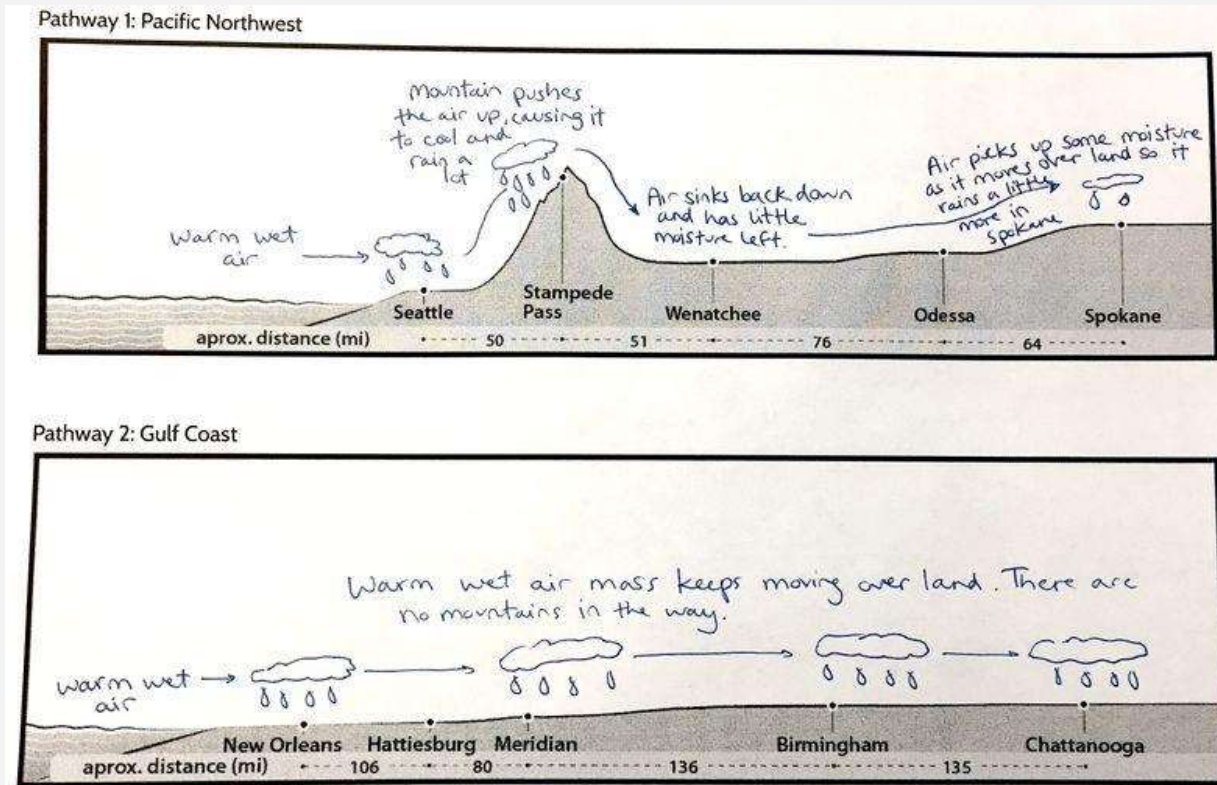 Pathway 1: Pacific Northwest
Mountain pushes
the air up, causing it
to cool and
rain a
lot
Warm wet
air
Air sinks back down
and has little
moisture left.
Air picks up some moisture
as it moves over land so it
rains a little
more in
Spokane
Seattle
Stampede
Pass
Wenatchee
Odessa
Spokane
aprox. distance (mi)
50
51
76
64
Pathway 2: Gulf Coast
Warm wet air mass keeps moving over land. There are
no mountains in the way.
Warm wet
air
New Orleans
Hattiesburg
Meridian
Birmingham
Chattanooga
aprox. distance (mi)
106
80
136
135